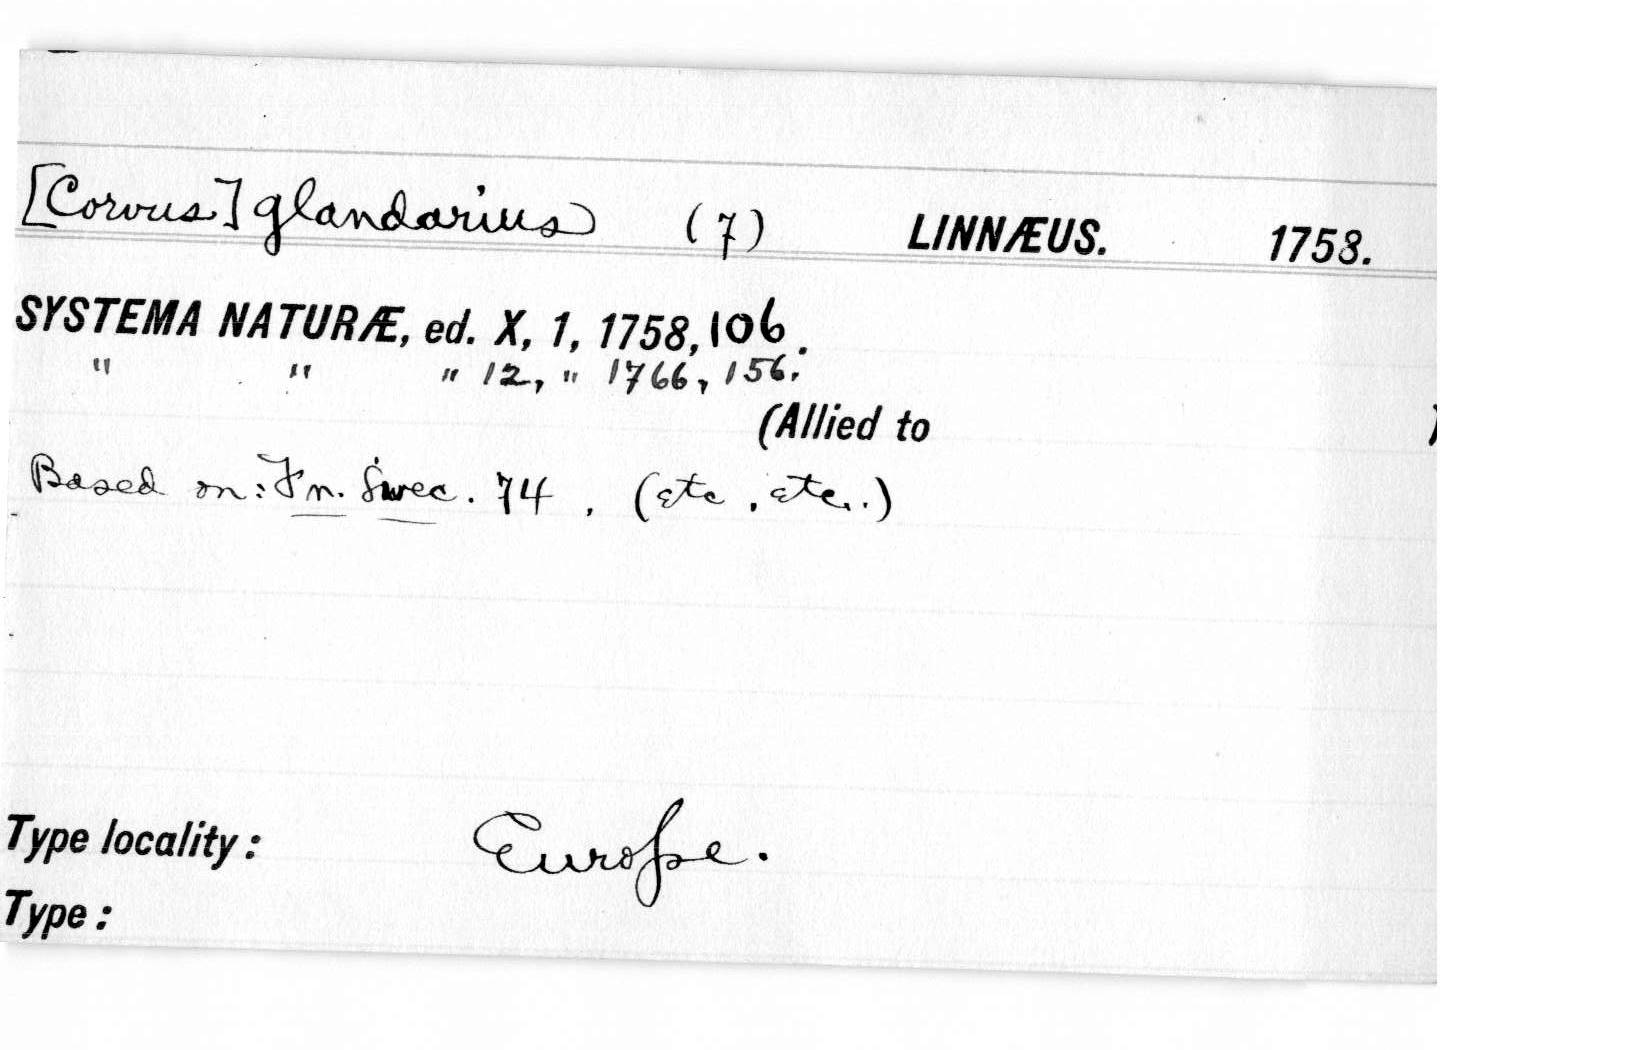 [Corvus] glandarius (7) LINNÆUS. 1758.
SYSTEMA NATURÆ, ed. X, 1, 1758, 106.
" " " 12, " 1766, 156.
(Allied to )
Based on: Fn. Svec. 74, (etc, etc.)
Type locality: Europe.
Type: